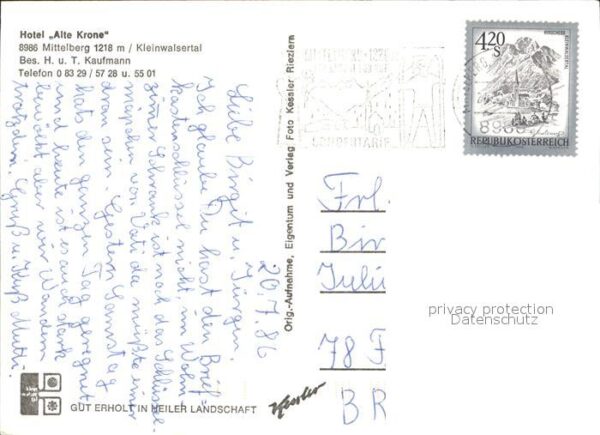 Hotel „Alte Krone“
8986 Mittelberg 1218 m / Kleinwalsertal
Bes. H. u. T. Kaufmann
Telefon 0 83 29 / 57 28 u. 55 01
20.7.86
Liebe Birgit u. Jürgen.
Ich glaube Du hast den Brief-
kastenschlüssel nicht, im Wohn-
zimer Schrank ist noch das Schlüssel-
mäpchen von Vati da müßte einer
dran sein. Gestern Samstag
hats den ganzen Tag geregnet
und heute ist es auch stark
bewölkt aber wir Wandern
trotzdem. Gruß u. Kuß Mutti.
Orig.-Aufnahme, Eigentum und Verlag Foto Kessler Riezlern
Kessler
GUT ERHOLT IN HEILER LANDSCHAFT
4.20
S
REPUBLIK ÖSTERREICH
Frl.
Bir
78 F
BR
privacy protection
Datenschutz